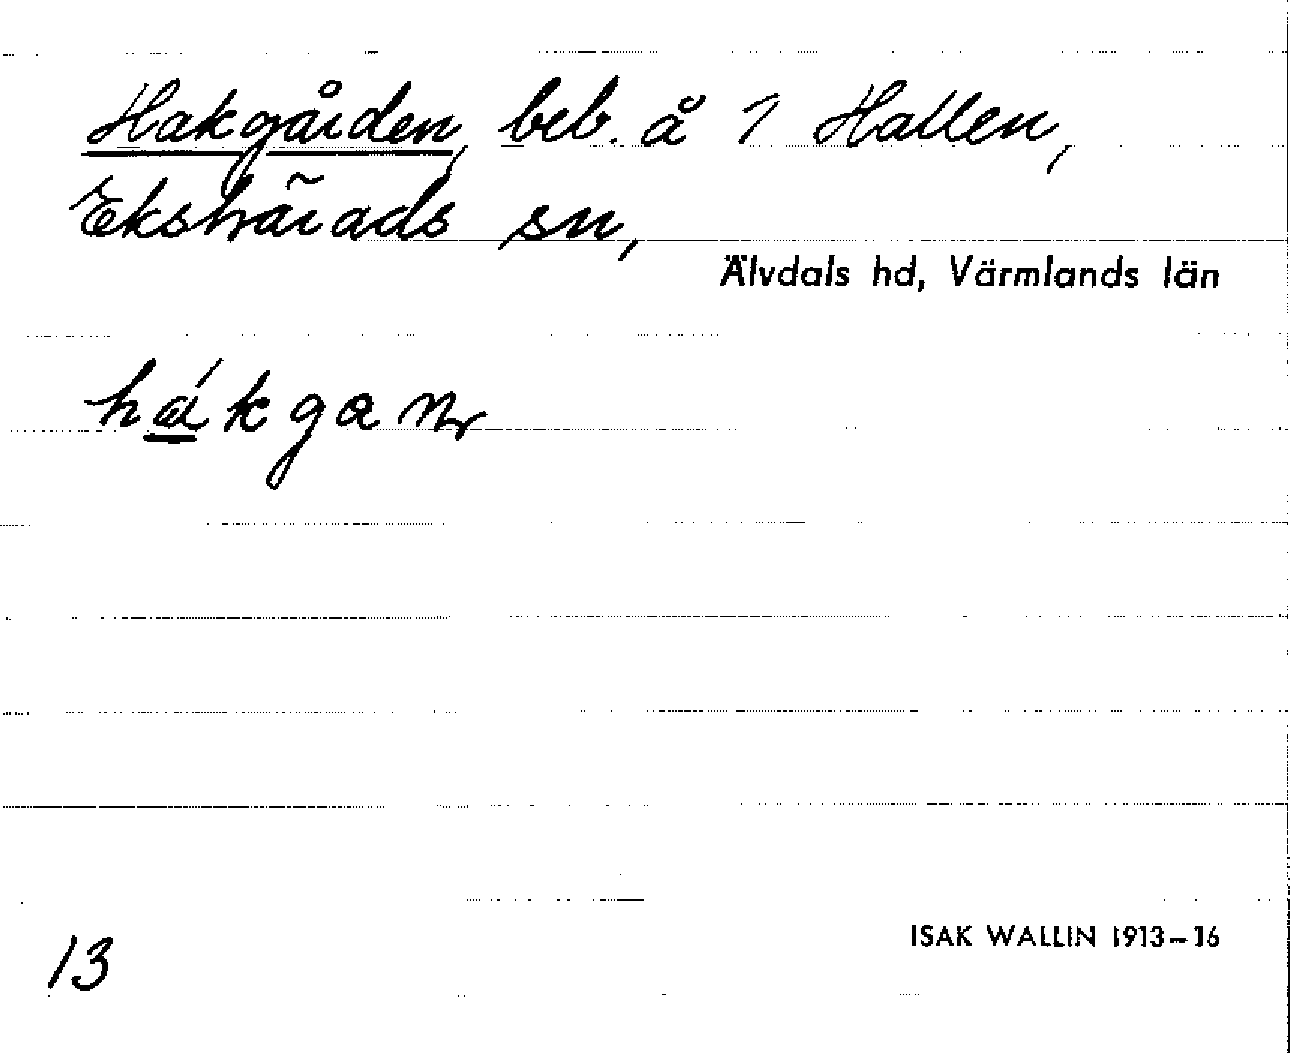 Hakgården, beb. å 1 Hallen,
Ekshärads sn,
Älvdals hd, Värmlands län
hákgaɳ
13
ISAK WALLIN 1913–16